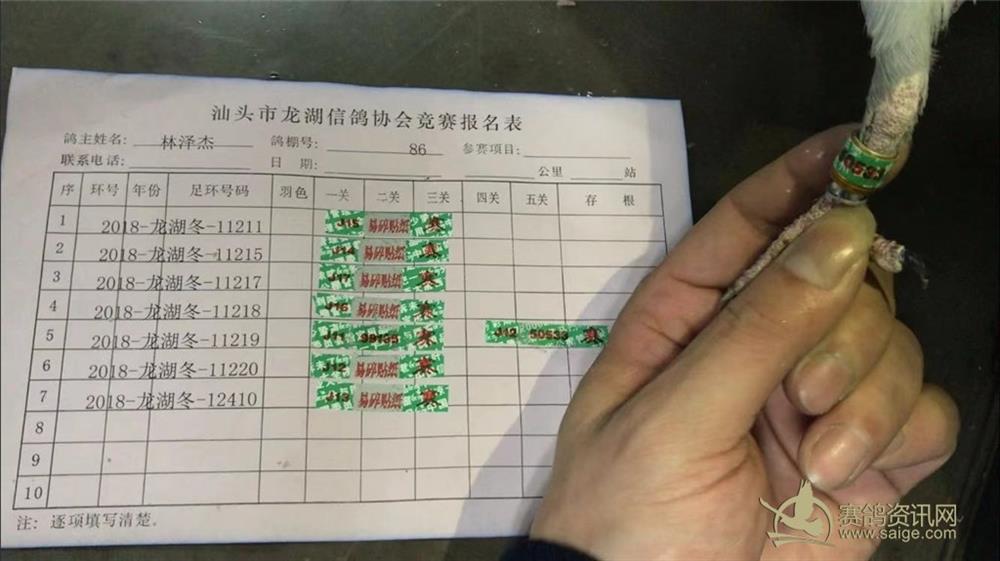 汕头市龙湖信鸽协会竞赛报名表
鸽主姓名: 林泽杰 鸽棚号: 86 参赛项目:
联系电话: 日 期: 公里 站
序 环号 年份 足环号码 羽色 一关 二关 三关 四关 五关 存 根
1 2018-龙湖冬-11211 J15 易碎贴纸 赛
2 2018-龙湖冬-11215 J14 易碎贴纸 赛
3 2018-龙湖冬-11217 J17 易碎贴纸 赛
4 2018-龙湖冬-11218 J16 易碎贴纸 赛
5 2018-龙湖冬-11219 J11 99135 赛 J12 50533 赛
6 2018-龙湖冬-11220 J12 易碎贴纸 赛
7 2018-龙湖冬-12410 J13 易碎贴纸 赛
8
9
10
注: 逐项填写清楚。
50533
赛鸽资讯网
www.saige.com